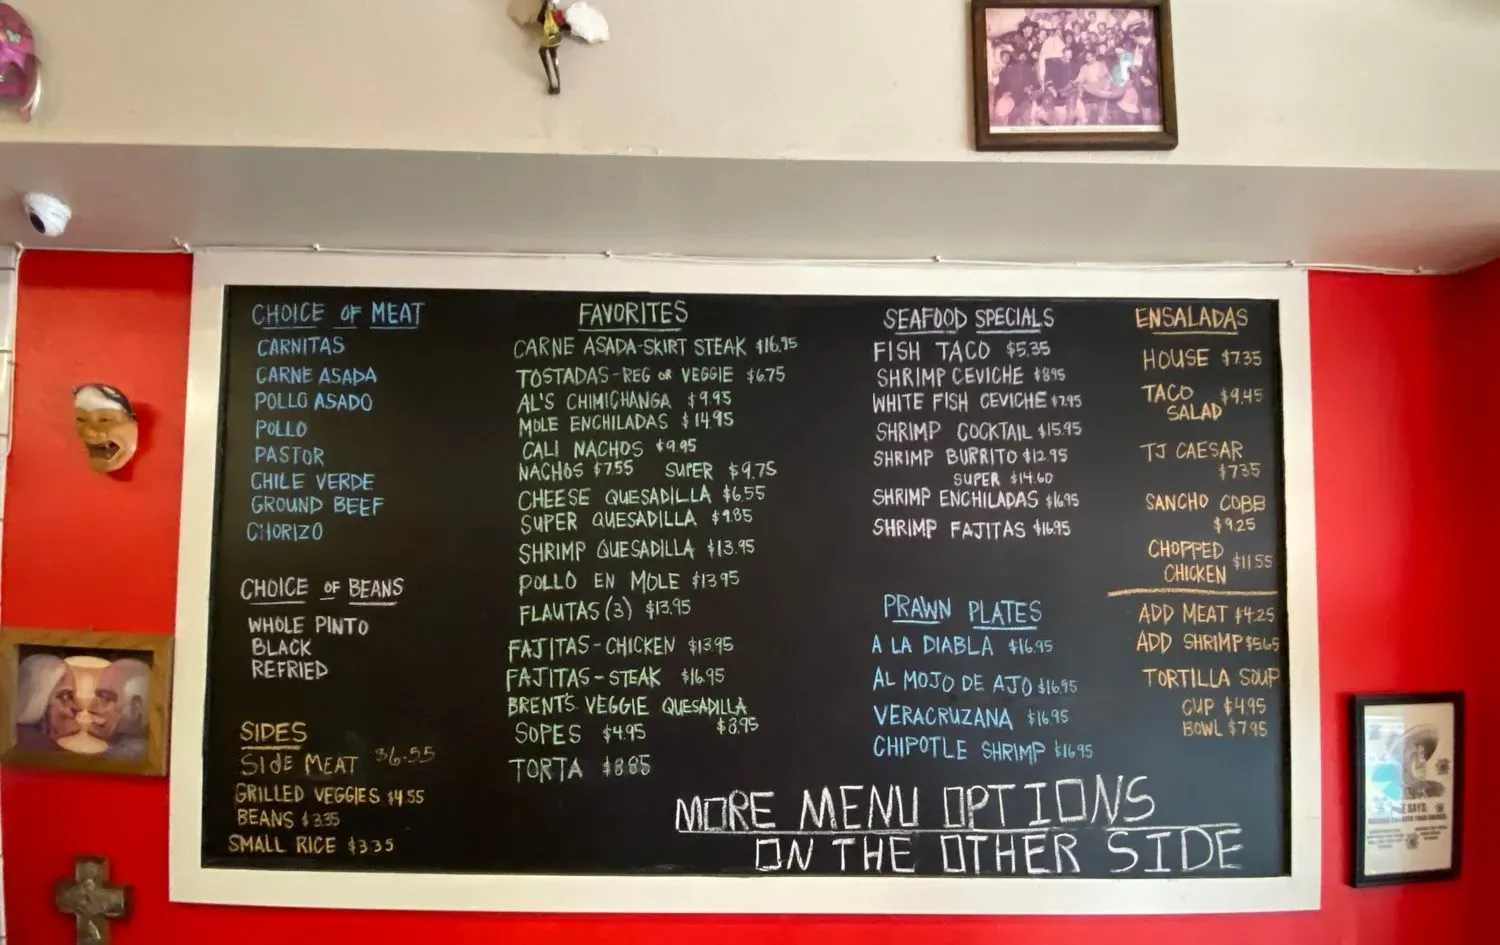 CHOICE OF MEAT
CARNITAS
CARNE ASADA
POLLO ASADO
POLLO
PASTOR
CHILE VERDE
GROUND BEEF
CHORIZO
CHOICE OF BEANS
WHOLE PINTO
BLACK
REFRIED
SIDES
SidE MEAT $6.55
GRILLED VEGGIES $4.55
BEANS $3.35
SMALL RICE $3.35
FAVORITES
CARNE ASADA-SKIRT STEAK $16.95
TOSTADAS-REG OR VEGGIE $6.75
AL'S CHIMICHANGA $9.95
MOLE ENCHILADAS $14.95
CALI NACHOS $9.95
NACHOS $7.55 SUPER $9.75
CHEESE QUESADILLA $6.55
SUPER QUESADILLA $9.85
SHRIMP QUESADILLA $13.95
POLLO EN MOLE $13.95
FLAUTAS (3) $13.95
FAJITAS-CHICKEN $13.95
FAJITAS-STEAK $16.95
BRENT'S VEGGIE QUESADILLA
$8.95
SOPES $4.95
TORTA $8.85
SEAFOOD SPECIALS
FISH TACO $5.35
SHRIMP CEVICHE $8.95
WHITE FISH CEVICHE $7.95
SHRIMP COCKTAIL $15.95
SHRIMP BURRITO $12.95
SUPER $14.60
SHRIMP ENCHILADAS $16.95
SHRIMP FAJITAS $16.95
PRAWN PLATES
A LA DIABLA $16.95
AL MOJO DE AJO $16.95
VERACRUZANA $16.95
CHIPOTLE SHRIMP $16.95
ENSALADAS
HOUSE $7.35
TACO $9.45
SALAD
TJ CAESAR
$7.35
SANCHO COBB
$9.25
CHOPPED
CHICKEN $11.55
ADD MEAT $4.25
ADD SHRIMP $5.65
TORTILLA SOUP
CUP $4.95
BOWL $7.95
MORE MENU OPTIONS
ON THE OTHER SIDE
SAYS